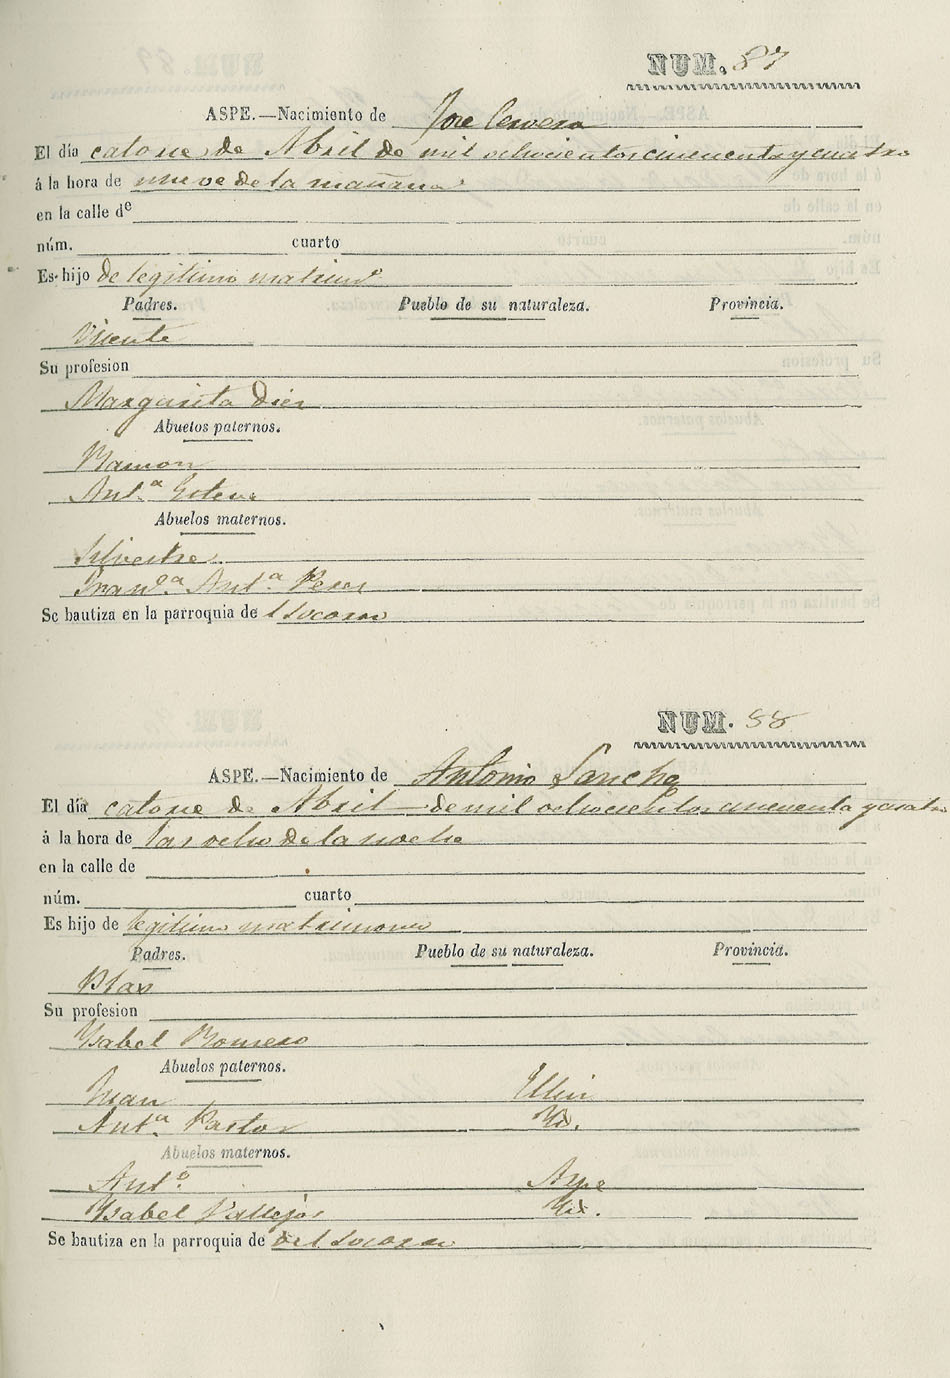 NUM. 87
ASPE.—Nacimiento de Jose Cervera
El dia catorce de Abril de mil ochocientos cincuenta y cuatro
á la hora de nueve de la mañana
en la calle de
núm. cuarto
Es hijo de legitimo matrimo
Padres. Pueblo de su naturaleza. Provincia.
Vicente
Su profesion
Margarita Diez
Abuelos paternos.
Ramon
Ant.ª Esteve
Abuelos maternos.
Silvestre
Fran.ca Ant.ª Perez
Se bautiza en la parroquia de l Socorro
NUM. 88
ASPE.—Nacimiento de Antonio Sanchez
El dia catorce de Abril de mil ochocientos cincuenta y cuatro
á la hora de las ocho de la noche
en la calle de
núm. cuarto
Es hijo de legitimo matrimonio
Padres. Pueblo de su naturaleza. Provincia.
Blas
Su profesion
Ysabel Romero
Abuelos paternos.
Juan Ellin
Ant.ª Pastor Yd.
Abuelos maternos.
Ant.º Aspe
Ysabel Vallejos Yd.
Se bautiza en la parroquia de del Socorro